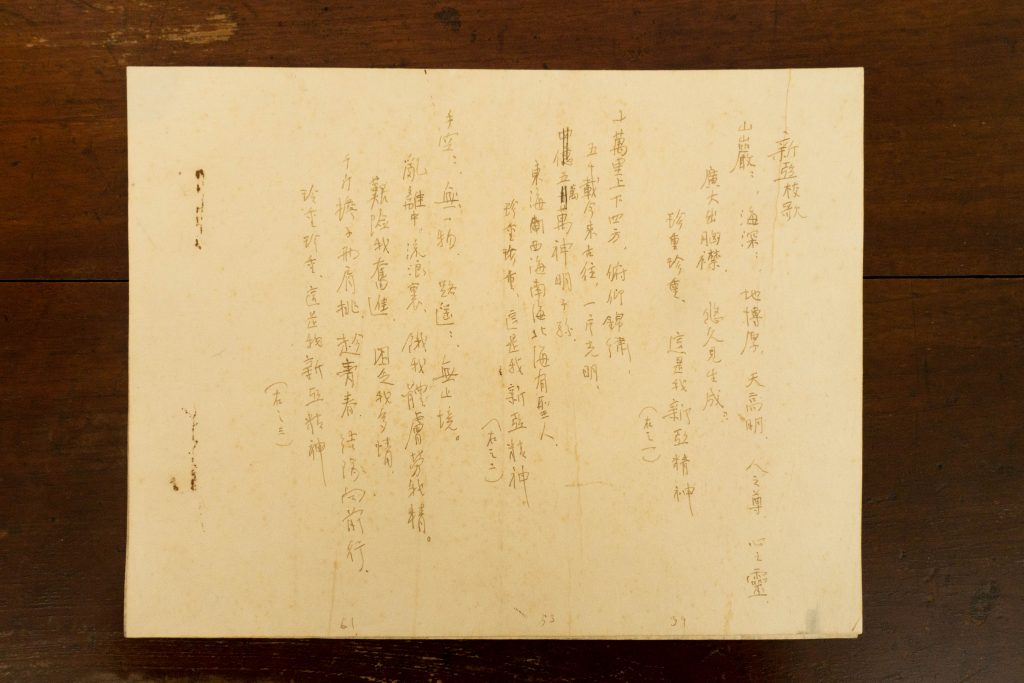 新亞校歌
山巖々，海深々，地博厚，天高明，人之尊，心之靈，
廣大出胸襟，悠久見生成。
珍重珍重，這是我新亞精神
（右之一）
十萬里上下四方，俯仰錦繡，
五千載今來古往，一片光明，
五萬萬神明子孫，
東海西海南海北海有聖人，
珍重珍重，這是我新亞精神
（右之二）
手空々，無一物，路遙々，無止境。
亂離中，流浪裏，餓我體膚勞我精。
艱險我奮進，困乏我多情，
千斤擔子兩肩挑，趁青春，結隊向前行，
珍重珍重，這是我新亞精神
（右之三）
53
61